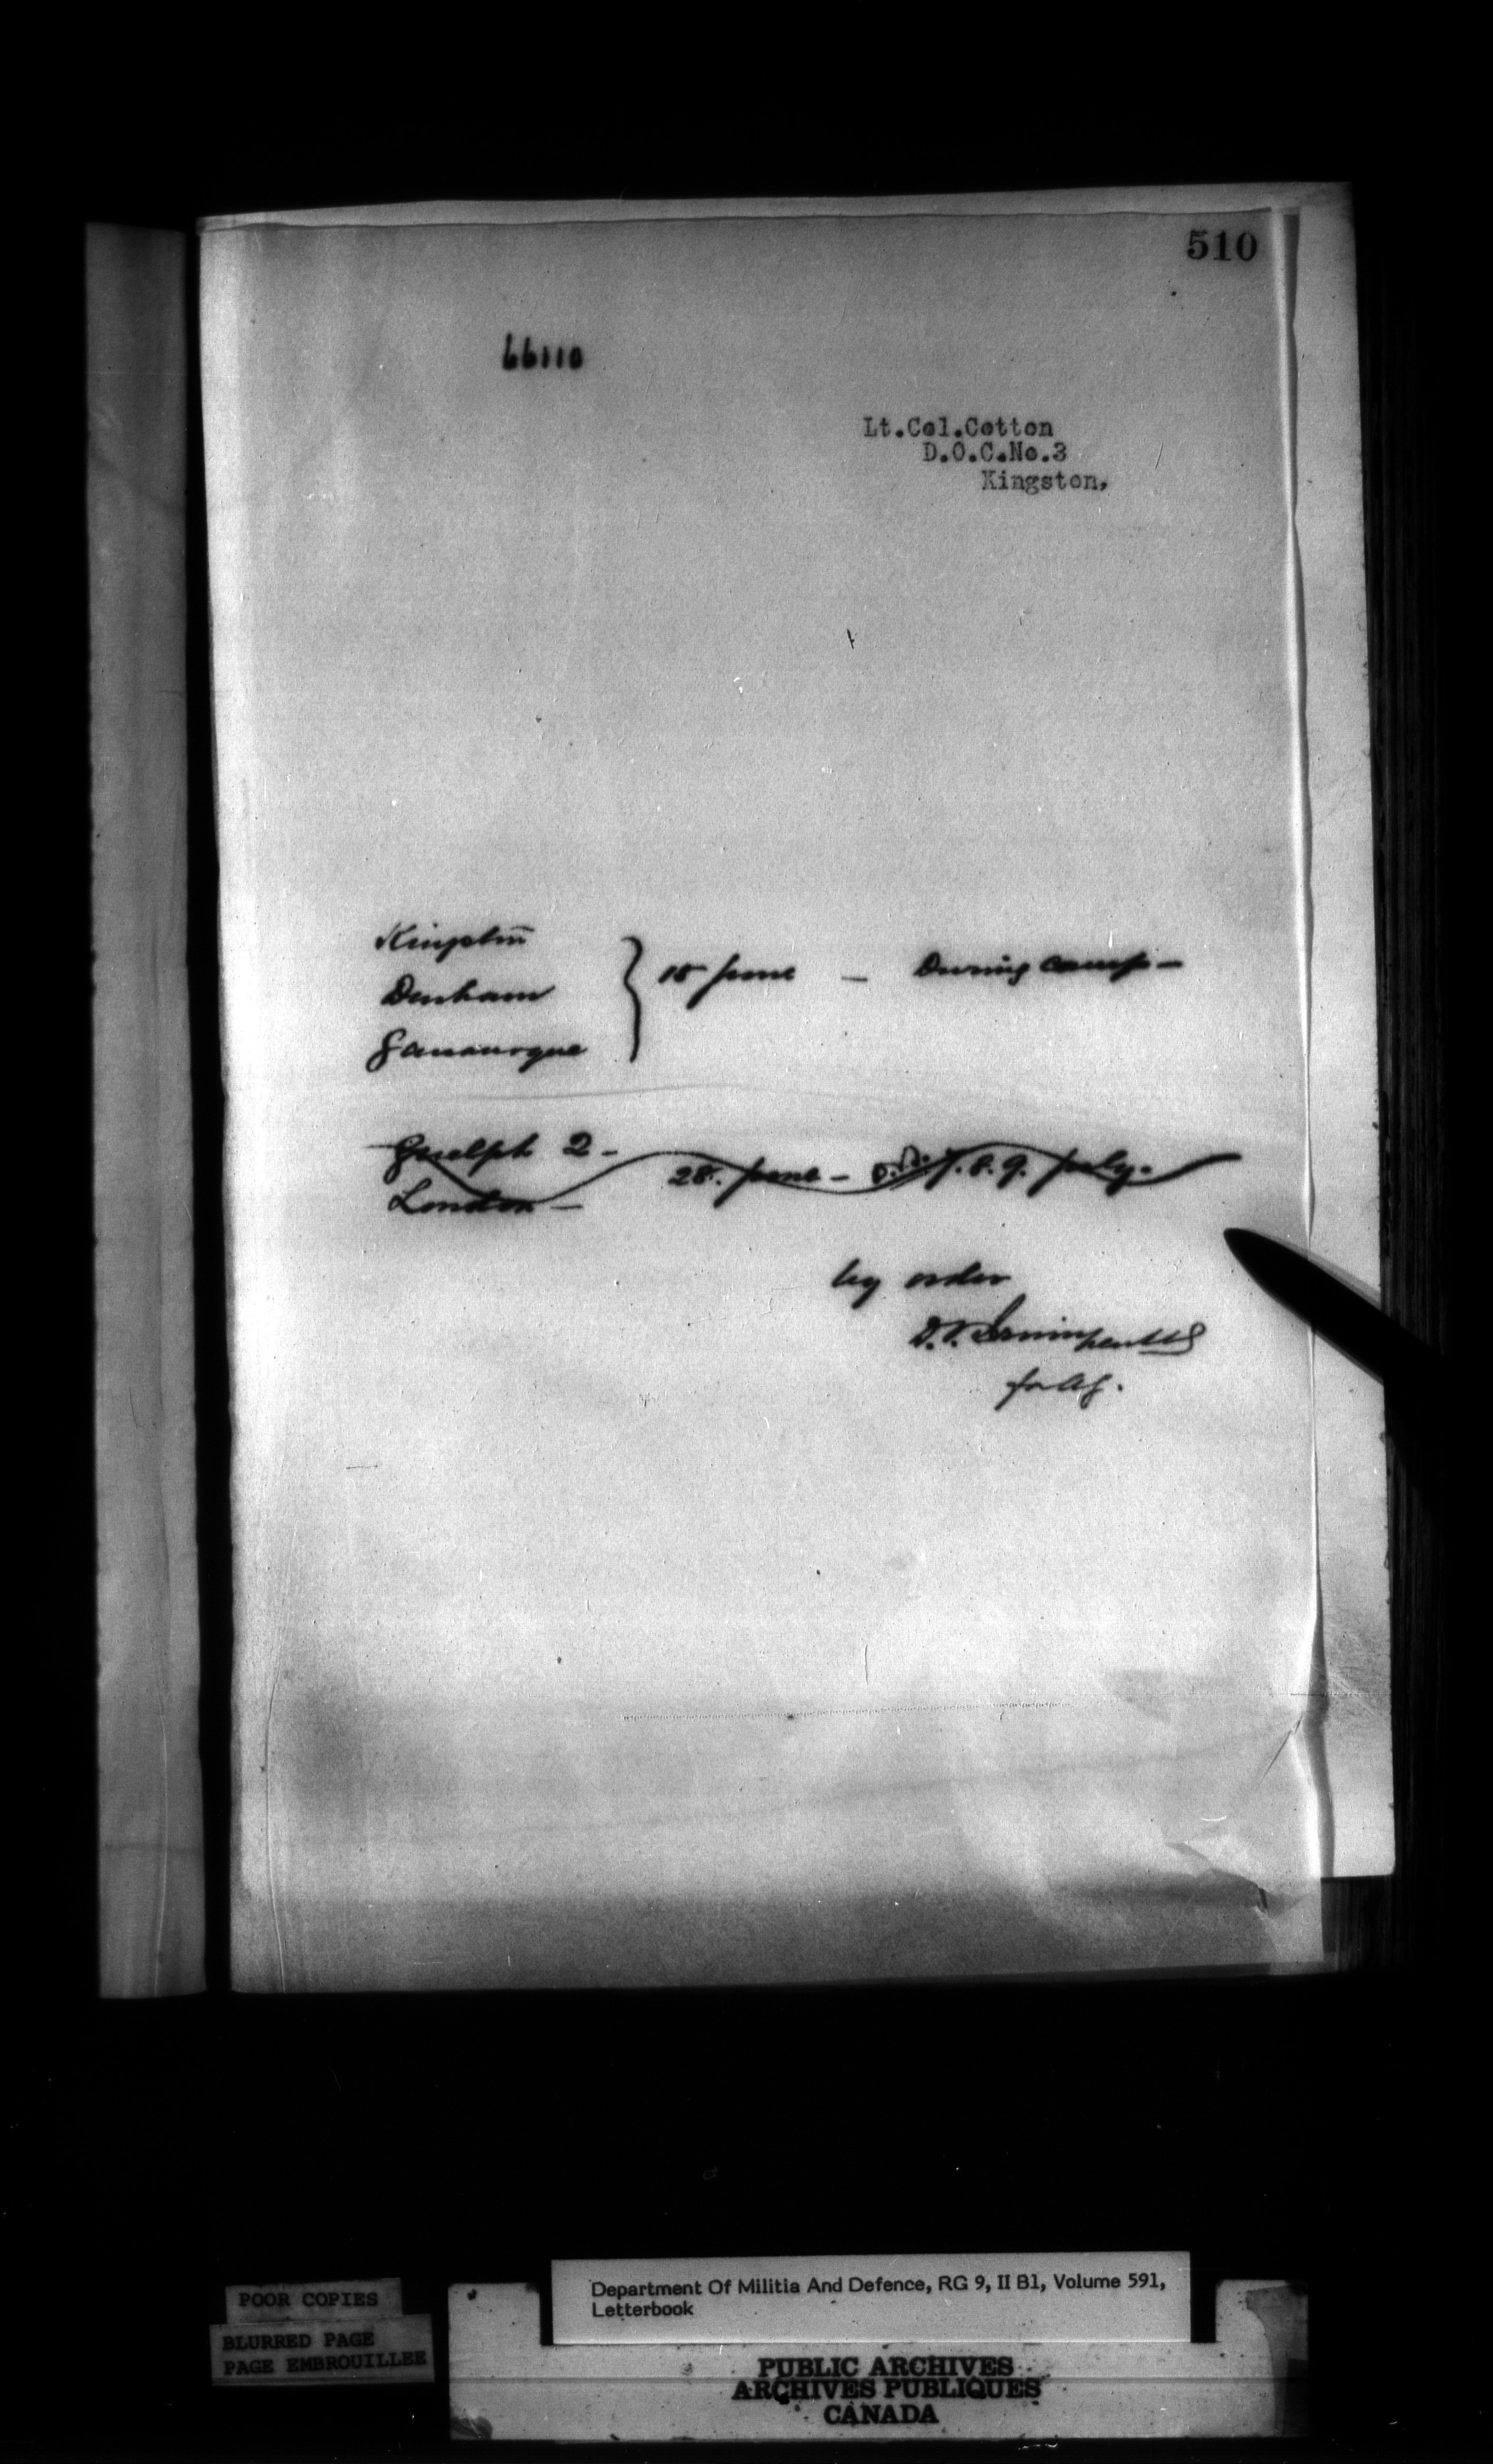 510
66110
Lt.Col.Cotton
D.O.C.No.3
Kingston,
Kingston
Denham
Gananoque
} 15 June — During camp —
Guelph 2 -
London -
28. June - 7. 8. 9. July.
by order
for AG.
POOR COPIES
BLURRED PAGE
PAGE EMBROUILLEE
Department Of Militia And Defence, RG 9, II B1, Volume 591,
Letterbook
PUBLIC ARCHIVES
ARCHIVES PUBLIQUES
CANADA